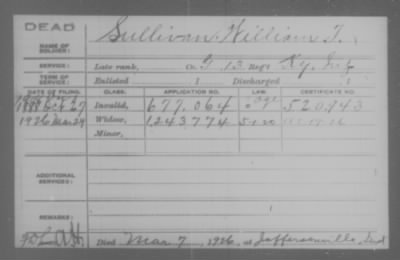 DEAD
NAME OF SOLDIER: Sullivan William T.
SERVICE: Late rank, Co. G 13 Reg't Ky. Inf
TERM OF SERVICE: Enlisted 1 Discharged 1
DATE OF FILING. CLASS. APPLICATION NO. LAW. CERTIFICATE NO.
27 Invalid, 677,064 age 520943
1926 Mar 29 Widow, 1243774 5-1-20
Minor,
ADDITIONAL SERVICES:
REMARKS:
Died Mar 7, 1926, at Jeffersonville, Ind